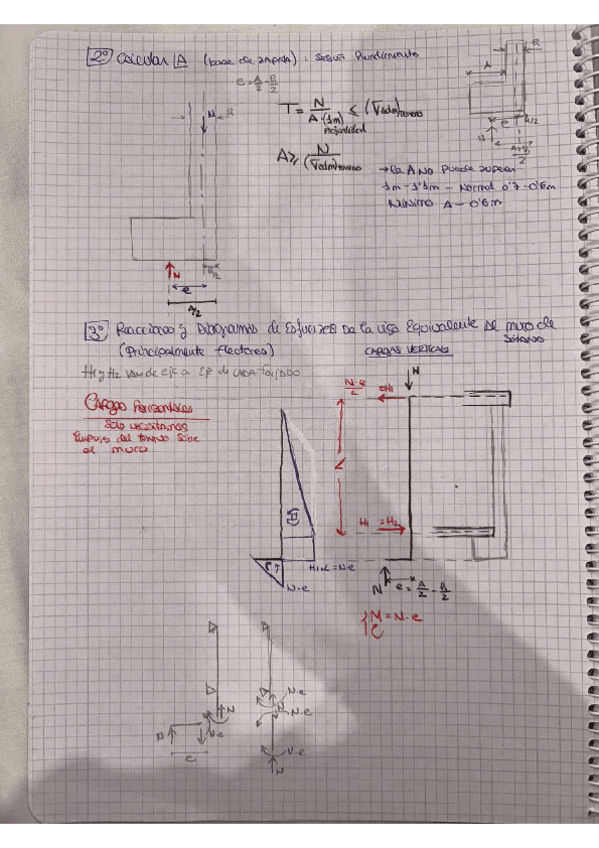 2º Calcular A (base de zapata) : según Rendimiento
e = A/2 - B/2
N
B
T = N / A·(1m) ≤ (σadm)terreno
Profundidad
A ≥ N / (σadm)terreno
→ La A no puede superar
1m - 1'5m - Normal 0'7 - 0'8m
Mínimo A - 0'6m
A
B
e
B/2
N
N
B/2
e
A/2
3º Reacciones y Diagramas de Esfuerzos De la viga Equivalente al muro de
sótano
(Principalmente flectores)
CARGAS VERTICALES
H1 y H2 van de eje a eje de cada forjado
Cargas Horizontales
Sólo necesitamos
Empujes del terreno sobre
el muro
N·e/L = H1
N
L
H1 = H2
H1·L = N·e
N·e
N
e = A/2 - B/2
M = N·e
N·e
N·e
N
N
N·e
e
N·e
N